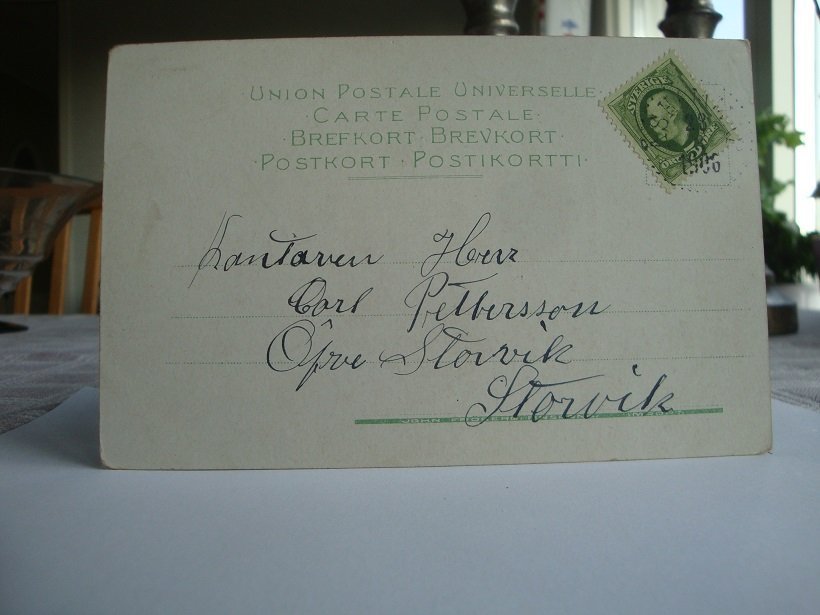 UNION POSTALE UNIVERSELLE
CARTE POSTALE
BREFKORT · BREVKORT
POSTKORT · POSTIKORTTI
SVERIGE
1906
Kantaren Herr
Carl Pettersson
Öfve Storvik
Storvik
JOHN